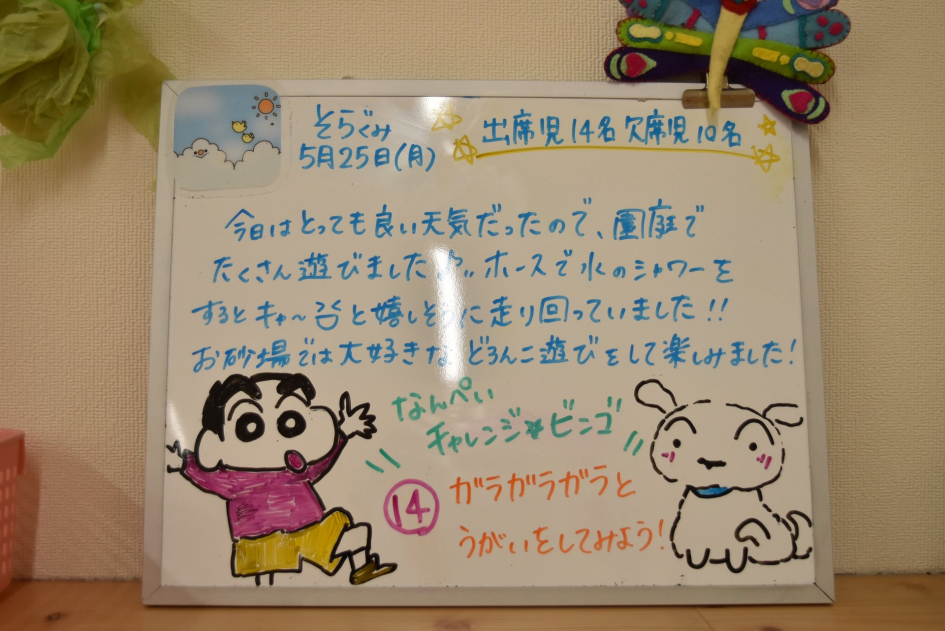 そらぐみ
5月25日(月)
出席児14名 欠席児10名
今日はとっても良い天気だったので、園庭で
たくさん遊びました♪〃ホースで水のシャワーを
するとキャ〜と嬉しそうに走り回っていました!!
お砂場では大好きなどろんこ遊びをして楽しみました!
なんぺい
チャレンジ★ビンゴ
14 ガラガラガラと
うがいをしてみよう!